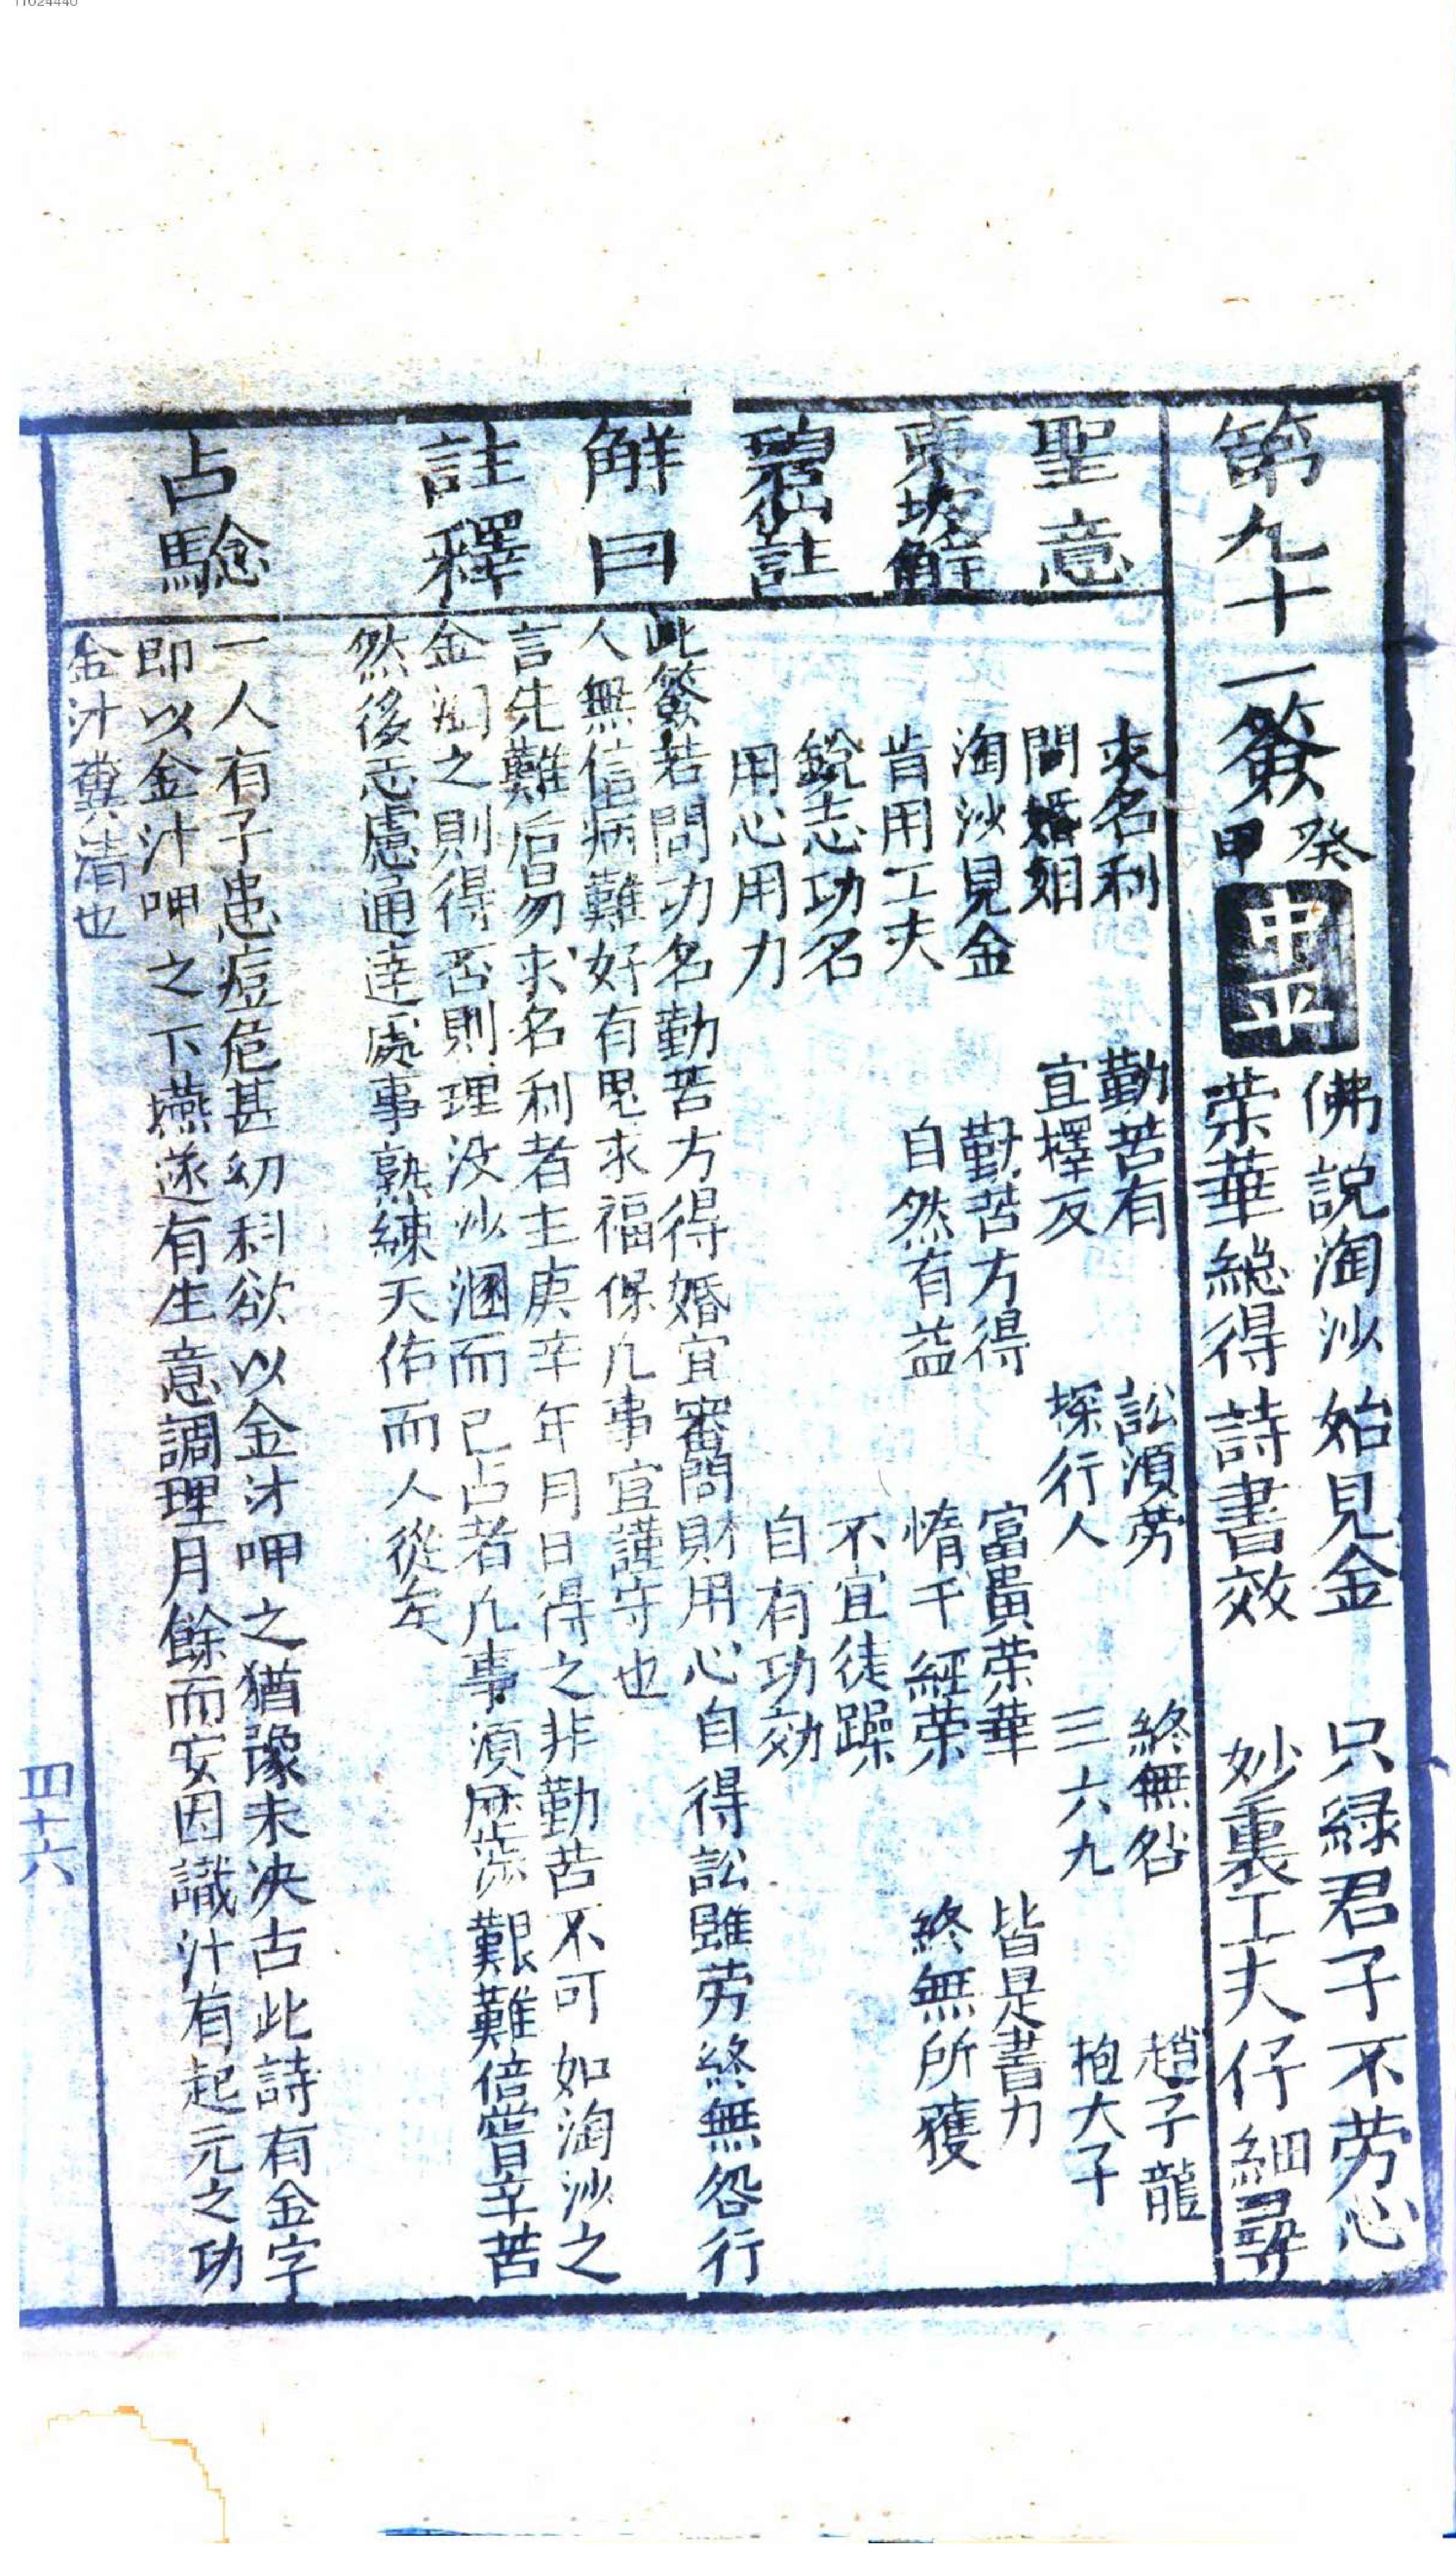 11624440
第九十一簽 癸甲 中平
佛說淘沙始見金 只緑君子不劳心
荣華總得詩書效 妙裏工夫仔細尋
聖意
求名利 勤苦有 訟須劳 終無咎 趙子龍
問婚姻 宜擇友 探行人 三六九 抱太子
東坡解
淘沙見金 勤苦方得 富貴荣華 皆是書力
肯用工夫 自然有益 惰干經荣 終無所獲
碧仙註
銳志功名 不宜徒躁
用心用力 自有功効
解曰
此簽若問功名勤苦方得婚宜審問財用心自得訟雖劳終無咎行
人無信病難好有鬼求福保凢事宜謹守也
註釋
言先難后易求名利者主庚辛年月日得之非勤苦不可如淘沙之
金淘之則得否則理没沙溷而已占者凢事須歷涉艱難倍嘗辛苦
然後志慮通達處事熟練天佑而人從矣
占驗
一人有子患痘危甚幼科欲以金汁呷之猶豫未决古此詩有金字
即以金汁呷之下燕遂有生意調理月餘而安因識汁有起元之功
金汁糞清也
四十六